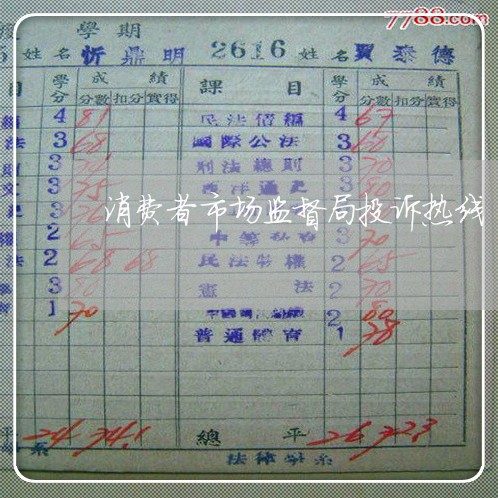 7788.com
學期
姓名 忻鼎明 2616 姓名 賈泰德
目 學分 成績 課目 學分 成績
分數 扣分 實得 分數 扣分 實得
4 81 民法債編 4 67
法 3 68 國際公法 3 60
3 刑法總則 3 70
3 75 西洋通史 3 80
消费者市场监督局投诉热线
2 65 3 70
法 2 68 68 民法物權 2 65
3 80 憲法 2 70
1 70 2 80
普通體育 1 78
平 24 74.1 總平 26 72.3
系 法律學系